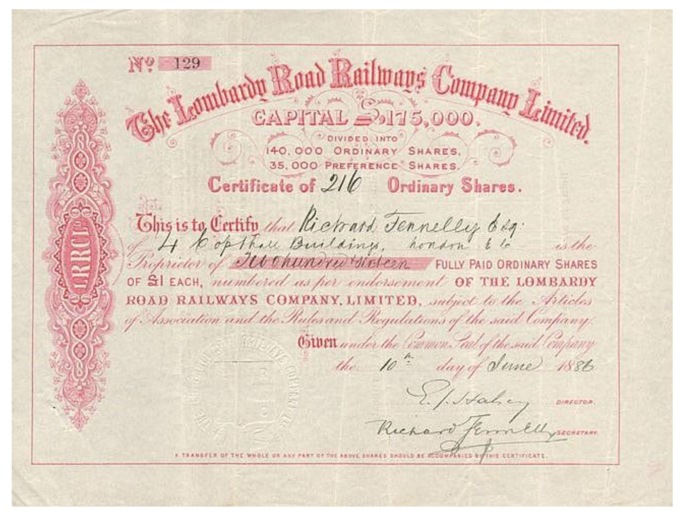 No 129
The Lombardy Road Railways Company Limited.
CAPITAL £175,000.
DIVIDED INTO
140,000 ORDINARY SHARES,
35,000 PREFERENCE SHARES.
Certificate of 216 Ordinary Shares.
This is to Certify that Richard Fennelly Esq.
of 4 Copthall Buildings, London E C is the
Proprietor of Two hundred & sixteen FULLY PAID ORDINARY SHARES
OF £1 EACH, numbered as per endorsement OF THE LOMBARDY
ROAD RAILWAYS COMPANY, LIMITED, subject to the Articles
of Association and the Rules and Regulations of the said Company.
Given under the Common Seal of the said Company
the 10th day of June 1886
DIRECTOR.
Richard Fennelly SECRETARY.
A TRANSFER OF THE WHOLE OR ANY PART OF THE ABOVE SHARES SHOULD BE ACCOMPANIED BY THIS CERTIFICATE.
LRRCLD